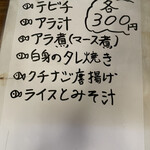 テビチ
アラ汁
アラ煮(マース煮)
白身のタレ焼き
クチナジ唐揚げ
ライスとみそ汁
各
300円